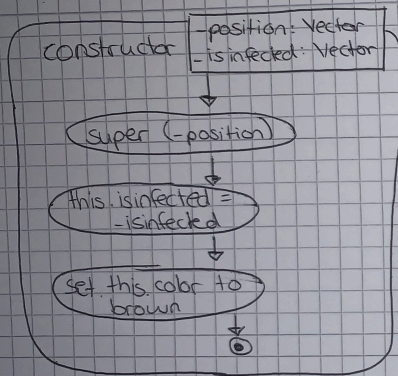 constructor
-position: Vector
-isinfected: Vector
super (-position)
this.isinfected =
-isinfected
set this.color to
brown